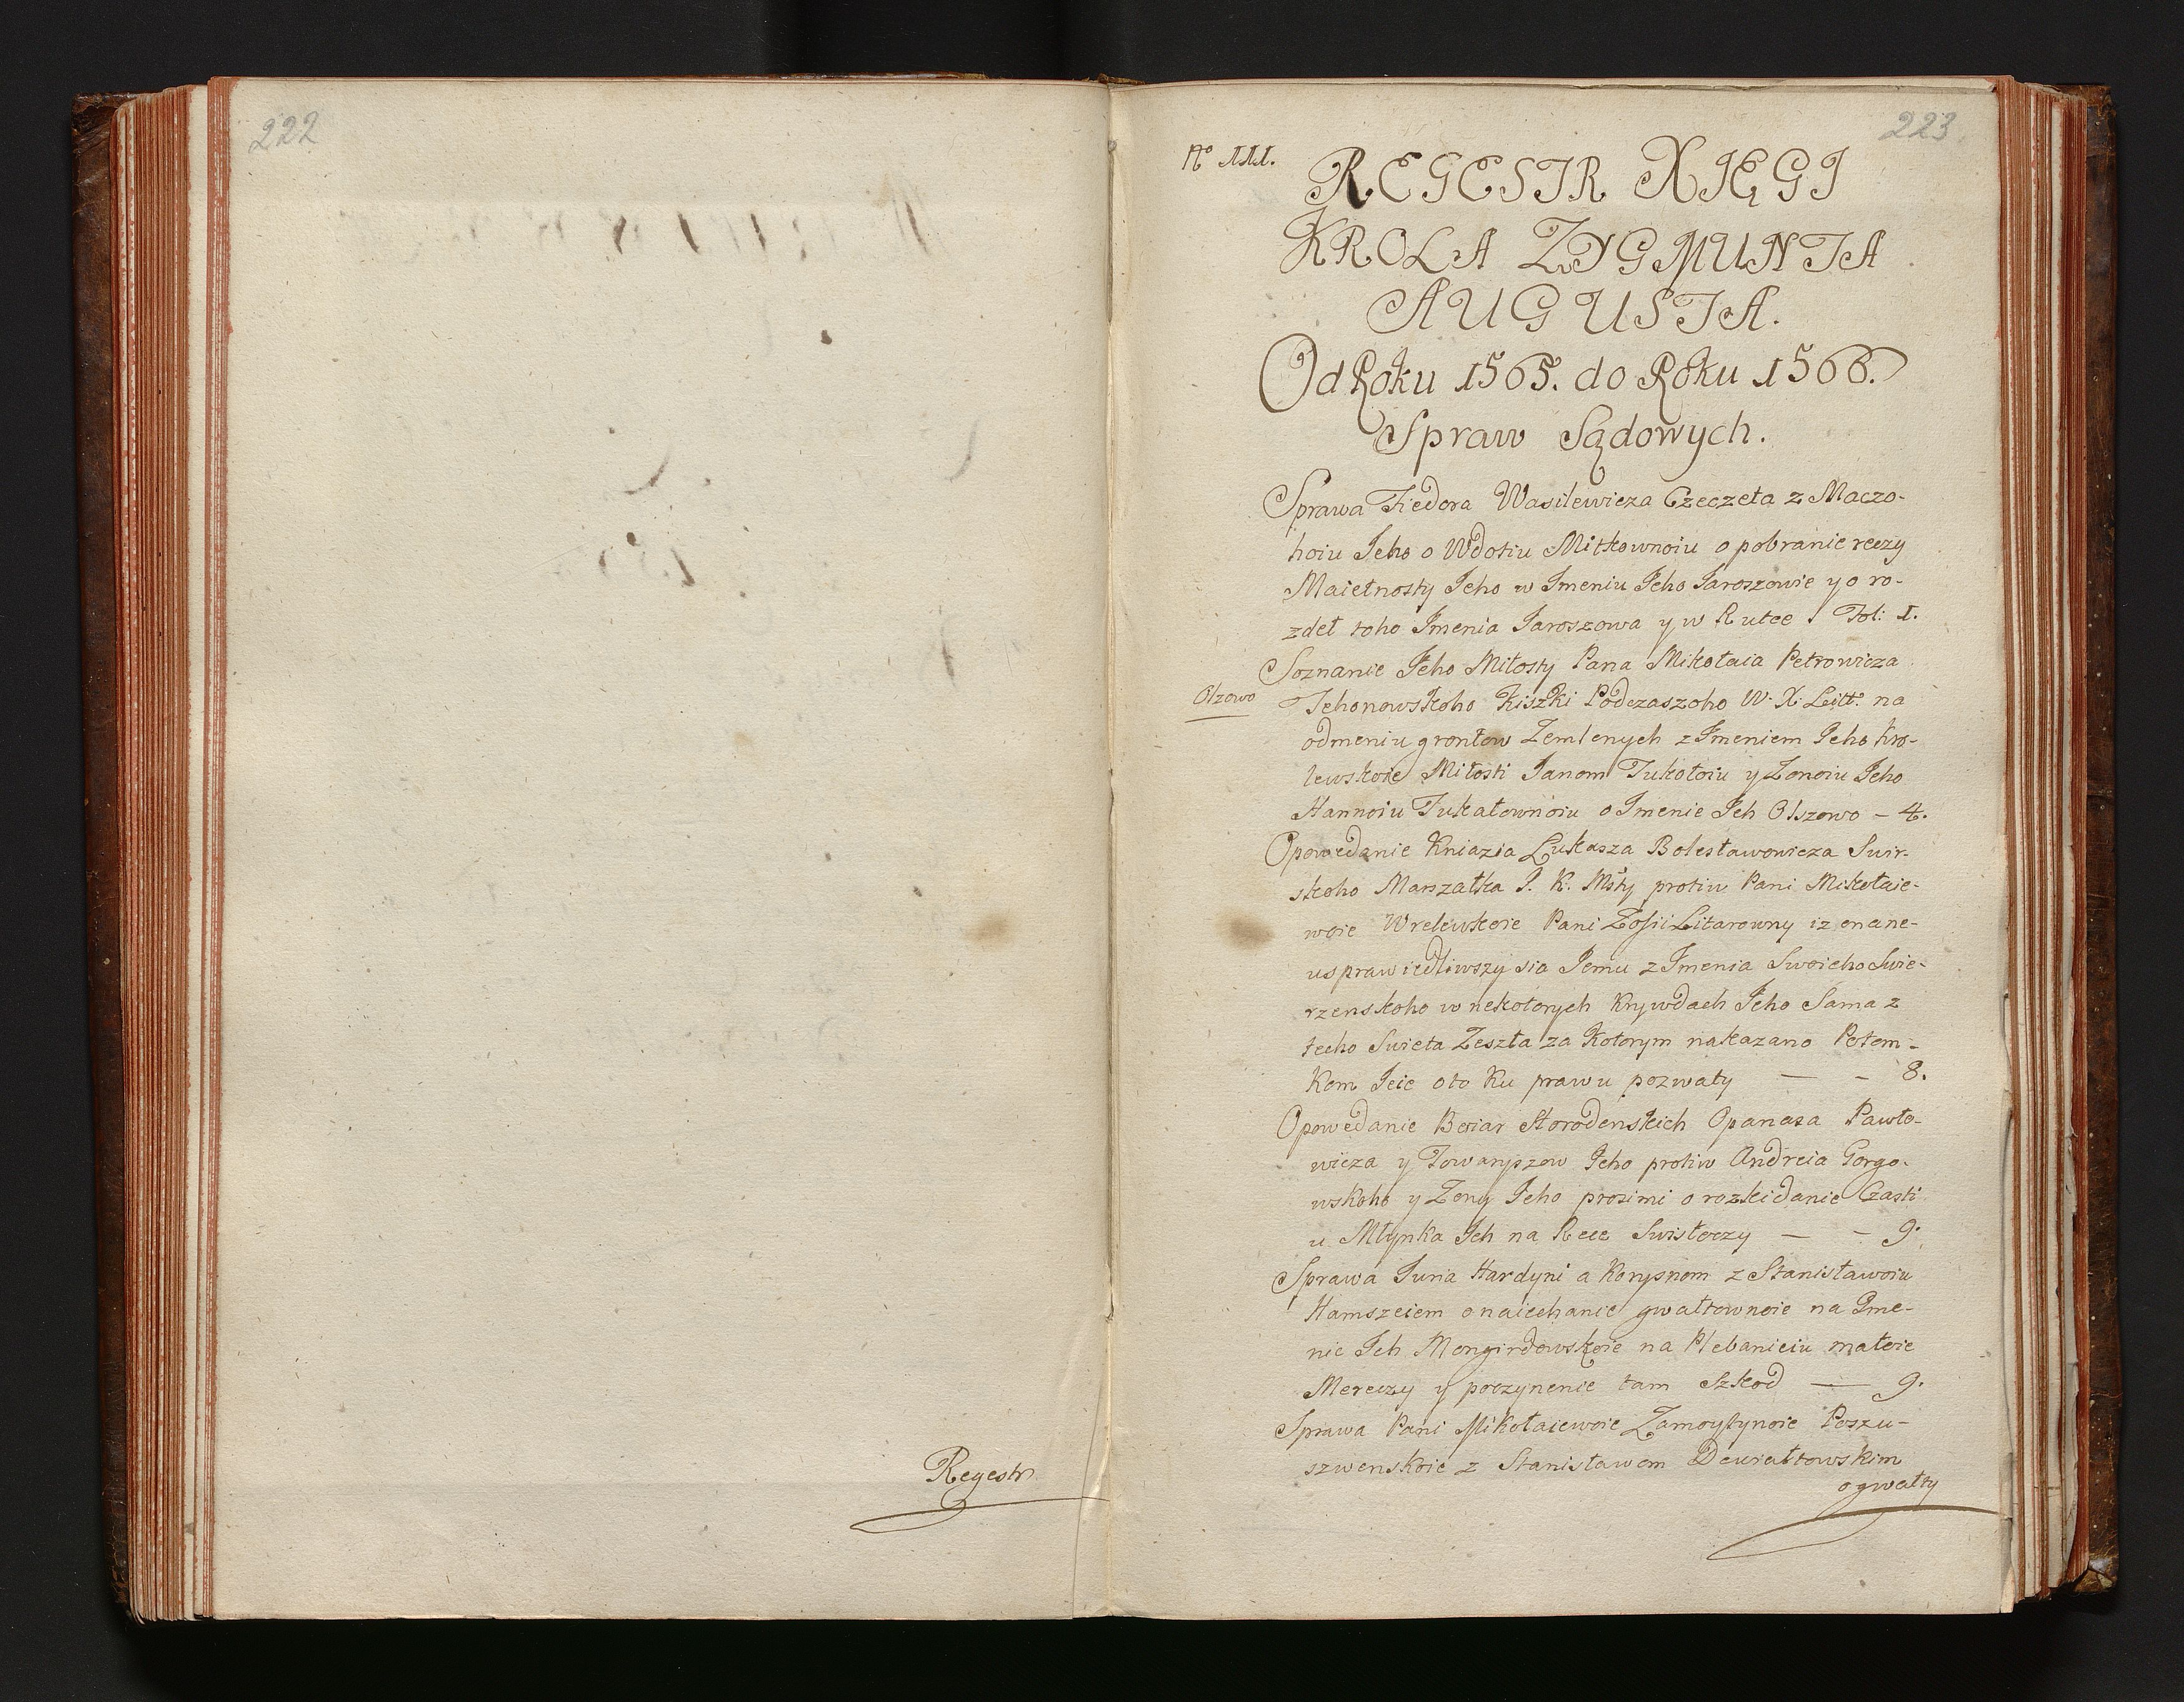 222
Regestr
223
No 111.
REGESTR XIĘGI
KROLA ZYGMUNTA
AUGUSTA.
Od Roku 1565. do Roku 1566.
Spraw Sądowych.
Sprawa Fiedora Wasilewicza Czeczeta z Maczo-
hoiu Jeho o Wdotiu Mitkownoiu o pobranie reczy
Maietnosty Jeho w Imeniu Jeho Jaroszowie y o ro-
zdeł toho Imenia Jaroszowa y w Rutce Fol: 1.
Soznanie Jeho Miłosty Pana Mikołaia Petrowicza
Olzowo
Tehonowskoho Kiszki Podczaszoho W. X. Litt: na
odmeniu grontow Zemlenych z Imeniem Jeho Kro-
lewskoie Miłosti Janom Tukołoiu y Zonoiu Jeho
Hannoiu Tukałownoiu o Imenie Jeh Olszowo - 4.
Opowedanie Kniazia Łukasza Bolesławowicza Swir-
skoho Marszałka J. K. Msty protiw Pani Mikołaie-
woie Wrelewskoie Pani Zofii Litarowny iz onane-
usprawiedliwszy sia Jemu z Imenia Swoieho Swie-
rzenskoho w nekotorych Krywdach Jeho Sama z
techo Swieta Zeszła za Kotorym nakazano Potom-
kom Jeie oto Ku prawu pozwaty — - 8.
Opowedanie Boiar Horodenskich Opanasa Pawło-
wicza y Towaryszow Jeho protiw Andreia Gorgo-
wskoho y Zony Jeho prosimi o rozkidanie Czasti
u Młynka Jeh na Rece Swisłoczy — - 9.
Sprawa Juria Hardyni a Korysnom z Stanisławoiu
Hamszeiem o naiechanie gwałtownoie na Ime-
nie Jeh Mongirdowskoie na Plebanieiu małoie
Mereczy y poczynenie tam Szkod — 9.
Sprawa Pani Mikołaiewoie Zamoytynoie Poszu-
szwenskoie z Stanisławom Dewiałtowskim
o gwałty